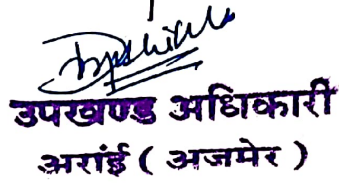 उपखण्ड अधिकारी
अरांई ( अजमेर )